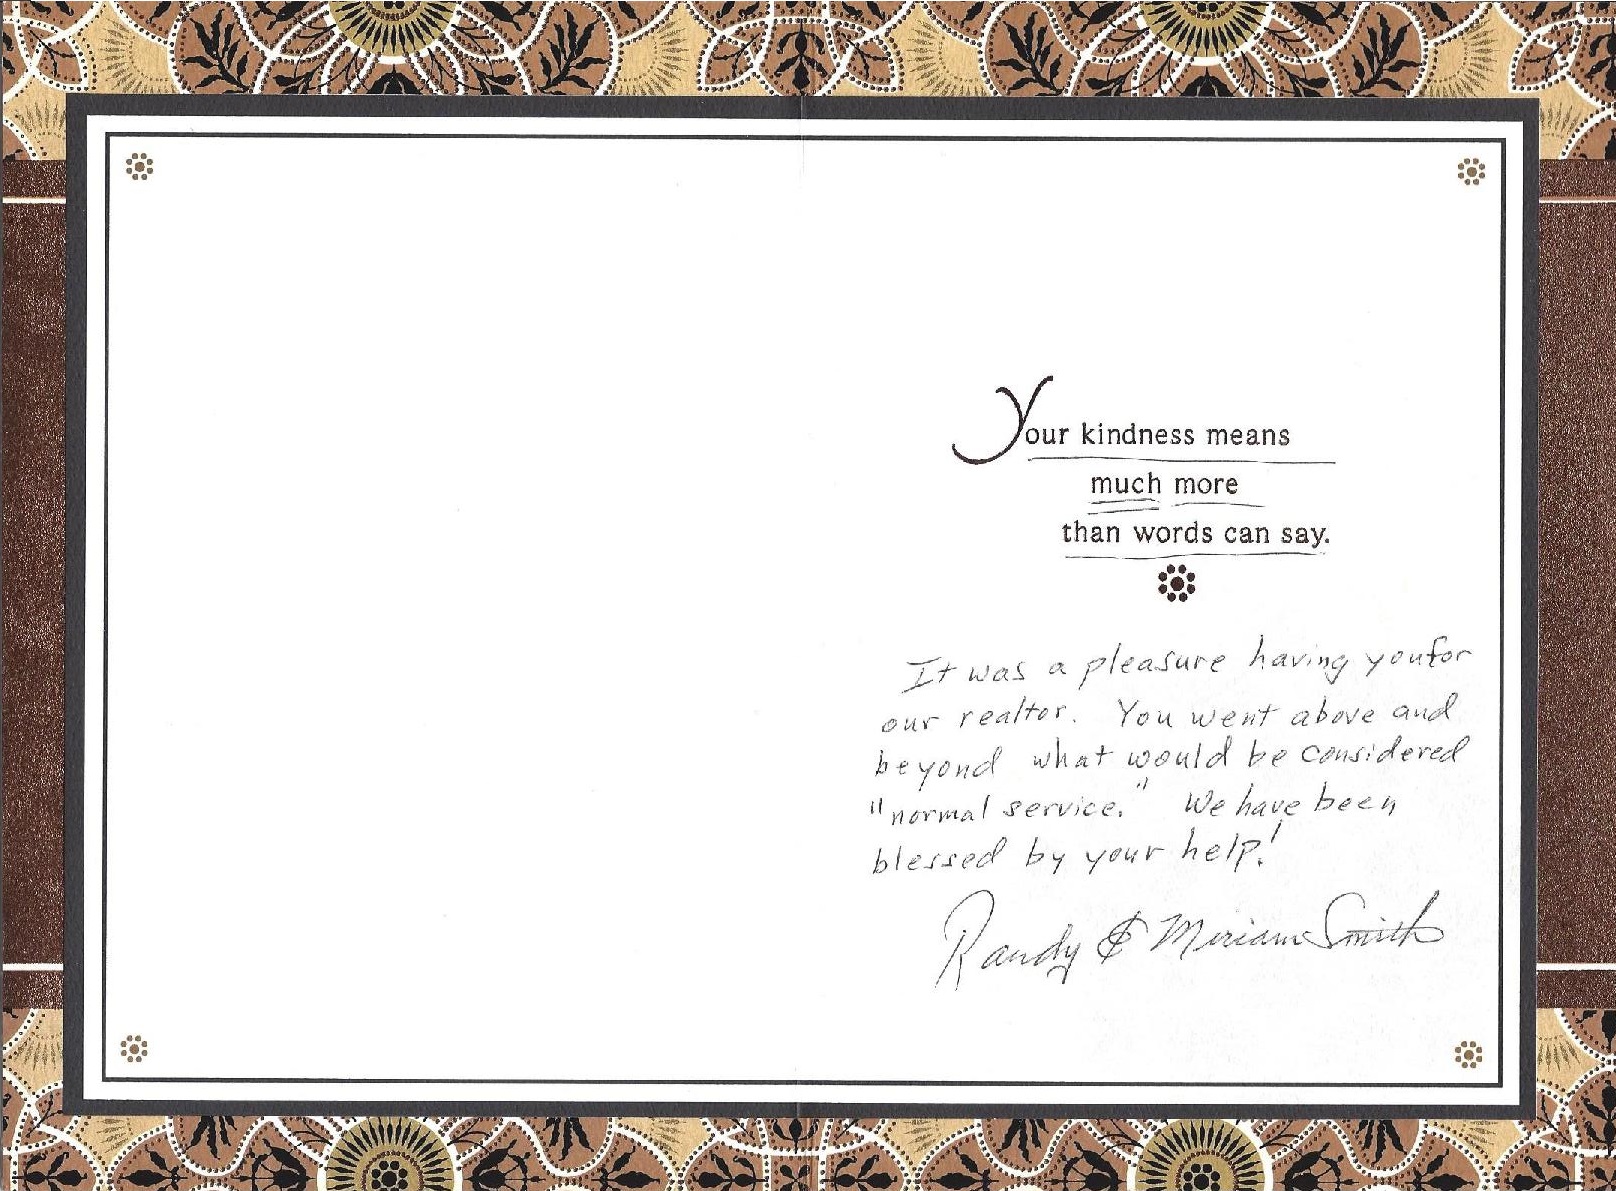 Your kindness means
much more
than words can say.
It was a pleasure having you for
our realtor. You went above and
beyond what would be considered
"normal service." We have been
blessed by your help!
Randy & Miriam Smith